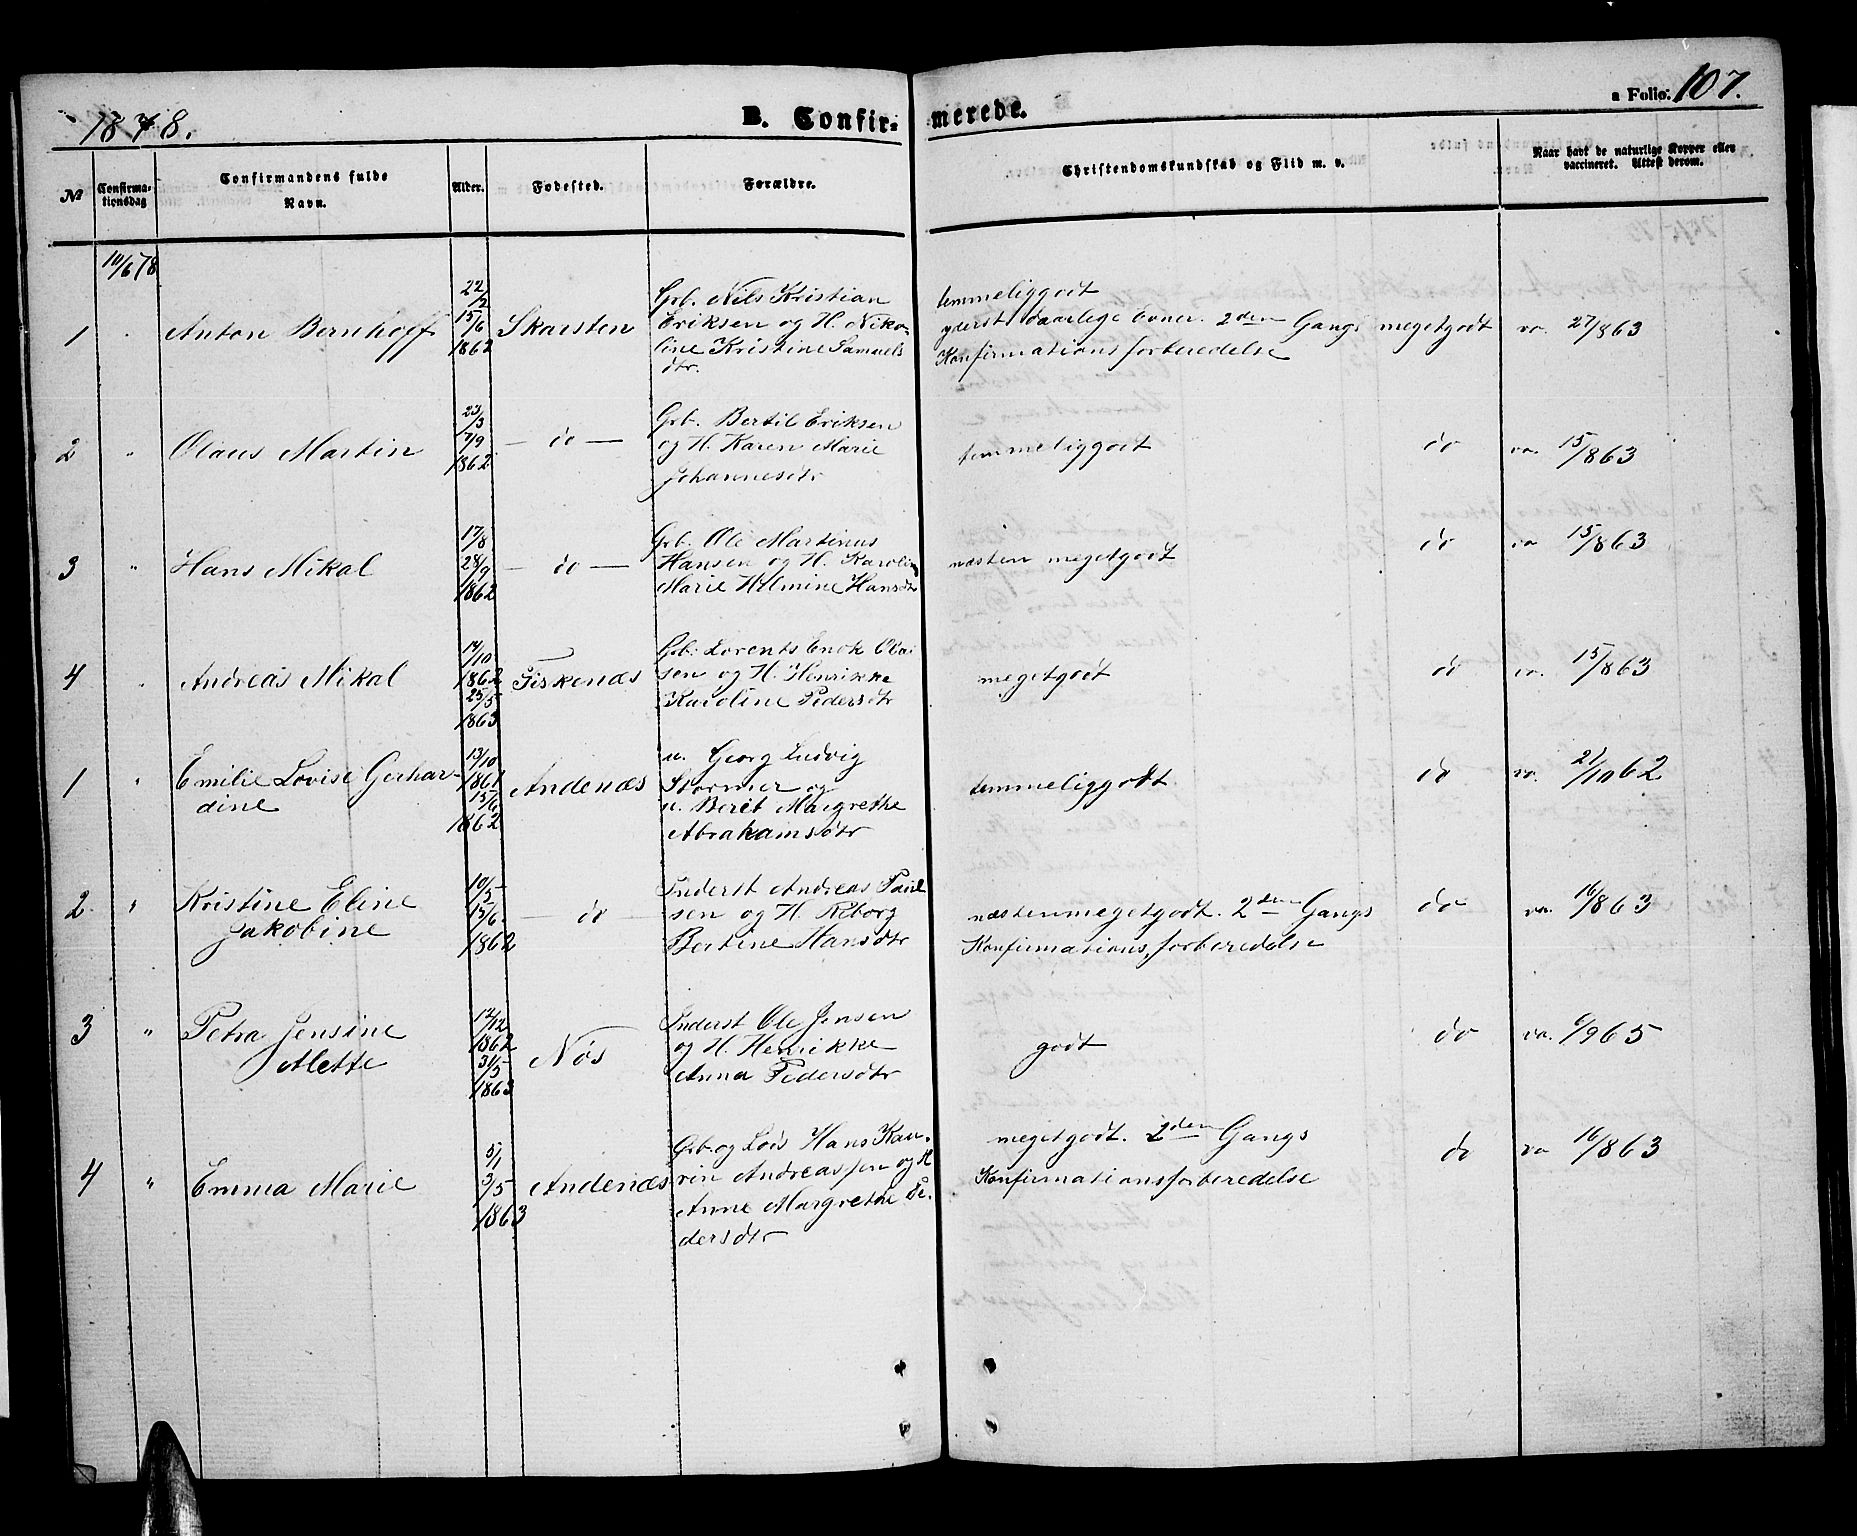 1878.
B. Confirmerede.
a Folio: 107.
No
Confirmationsdag
Confirmandens fulde Navn.
Alder.
Fødested.
Forældre.
Christendomskundskab og Flid m. v.
Naar havt de naturlige Kopper eller vaccineret. Attest derom.
10/6 78
1 Anton Bernhoff
22/2
15/6
1862
Skarsten
Grb. Nils Kristian
Eriksen og H. Niko-
line Kristine Samuels
dtr.
temmeliggodt
yderst daarlige Evner. 2den Gangs megetgodt va. 27/863
Konfirmationsforberedelse
2 " Olaus Martin
23/3
7/9
1862
— do —
Grb. Bertil Eriksen
og H. Karen Marie
Johannesdtr
temmeliggodt do va. 15/863
3 " Hans Mikal
17/8
28/9
1862
— do —
Grb. Ole Martinus
Hansen og H. Karoline
Marie Hilmine Hansdtr
næsten megetgodt do va 15/863
4 Andreas Mikal
14/10
1862
25/5
1863
Fiskenæs
Grb. Lorents Enok Olai
sen og H. Henrikke
Karoline Pedersdtr
megetgodt do va. 15/863
1 " Emilie Lovise Gerhar-
dine
13/10
1861
15/6
1862
Andenæs
u. Georg Ludvig
Stormer og
u. Berit Margrethe
Abrahamsdtr
temmeliggodt do va. 21/1062
2. " Kristine Eline
Jakobine
10/5
15/6.
1862
— do —
Inderst Andreas Paul
sen og H. Reborg
Bertine Hansdtr
næstenmegetgodt. 2den Gangs do va. 16/863
Konfirmationsforberedelse
3 " Petra Jensine
Alette
12/12
1862
31/5
1863
Nøs
Inderst Ole Jensen
og H. Henrikke
Anna Pedersdtr
godt do va. 6/965
4 " Emma Marie
5/1
3/5
1863
Andenæs
Grb. og Lods Hans Kau-
rin Andreassen og H
Anne Margrethe Pe-
dersdtr
megetgodt. 2den Gangs do va 16/863
Konfirmationsforberedelse